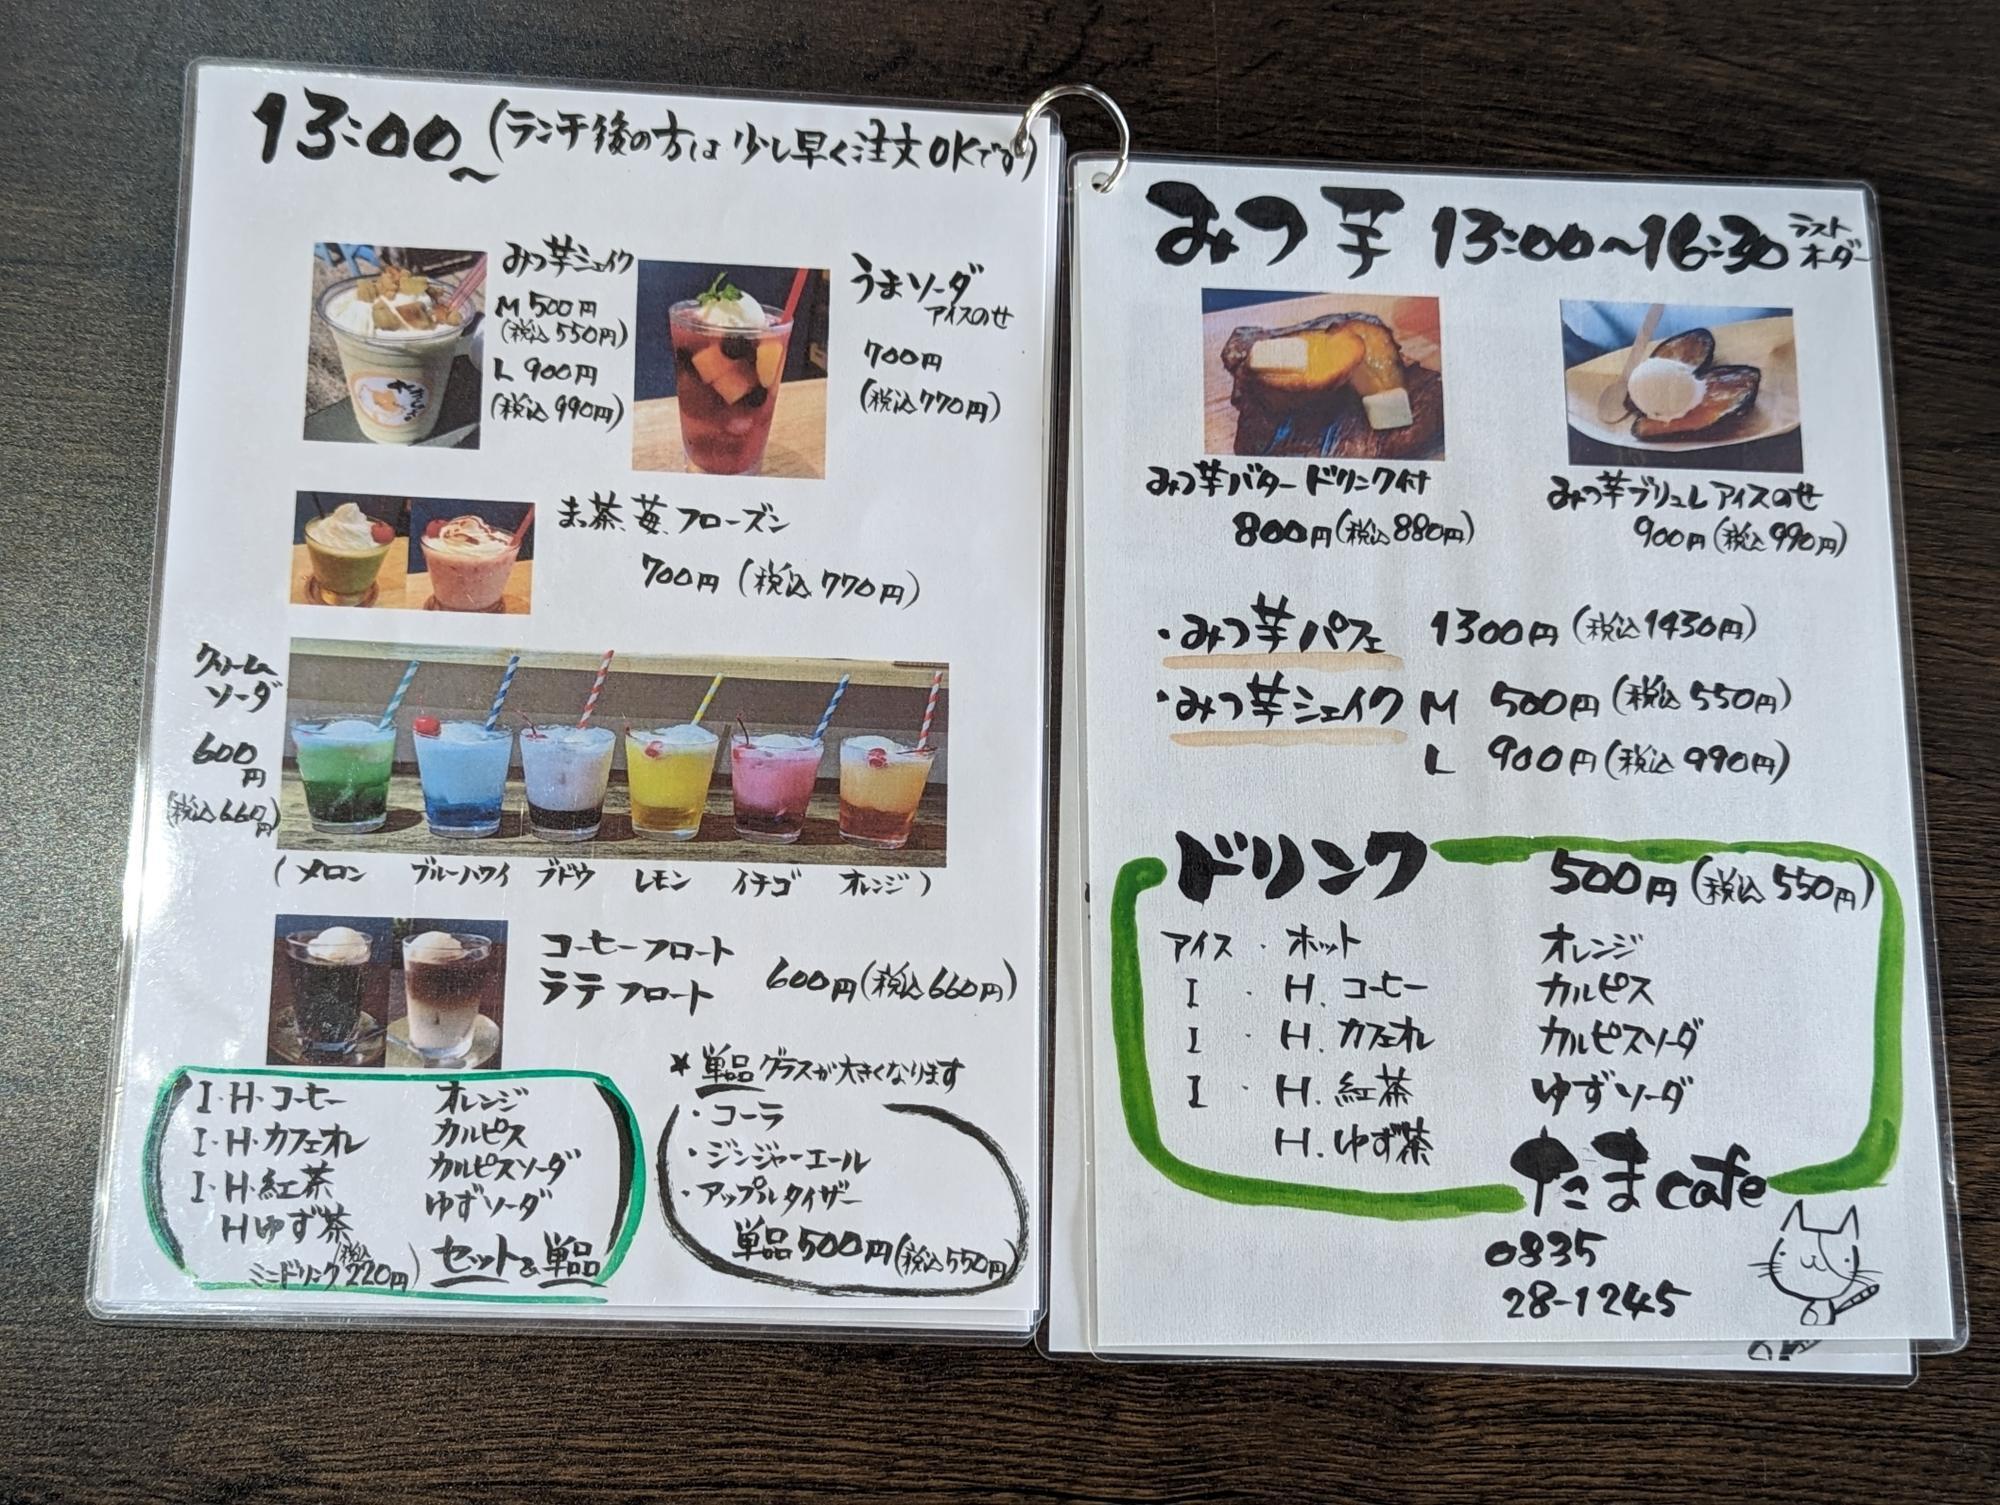 13:00~(ランチ後の方は少し早く注文OKです)
みつ芋シェイク
M 500円
(税込550円)
L 900円
(税込990円)
うまソーダ
アイスのせ
700円
(税込770円)
まっ茶、苺、フローズン
700円 (税込770円)
クリーム
ソーダ
600
円
(税込660円)
(メロン ブルーハワイ ブドウ レモン イチゴ オレンジ)
コーヒーフロート
ラテフロート
600円(税込660円)
I・H・コーヒー
I・H・カフェオレ
I・H・紅茶
Hゆず茶
オレンジ
カルピス
カルピスソーダ
ゆずソーダ
セット&単品
ミニドリンク税込220円)
*単品グラスが大きくなります
・コーラ
・ジンジャーエール
・アップルタイザー
単品500円(税込550円)
みつ芋 13:00~16:30ラスト
オーダー
みつ芋バタードリンク付
800円(税込880円)
みつ芋ブリュレアイスのせ
900円(税込990円)
・みつ芋パフェ 1300円(税込1430円)
・みつ芋シェイク M 500円(税込550円)
L 900円(税込990円)
ドリンク 500円(税込550円)
アイス・ホット
I・H.コーヒー
I・H.カフェオレ
I・H.紅茶
H.ゆず茶
オレンジ
カルピス
カルピスソーダ
ゆずソーダ
たまcafe
0835
28-1245